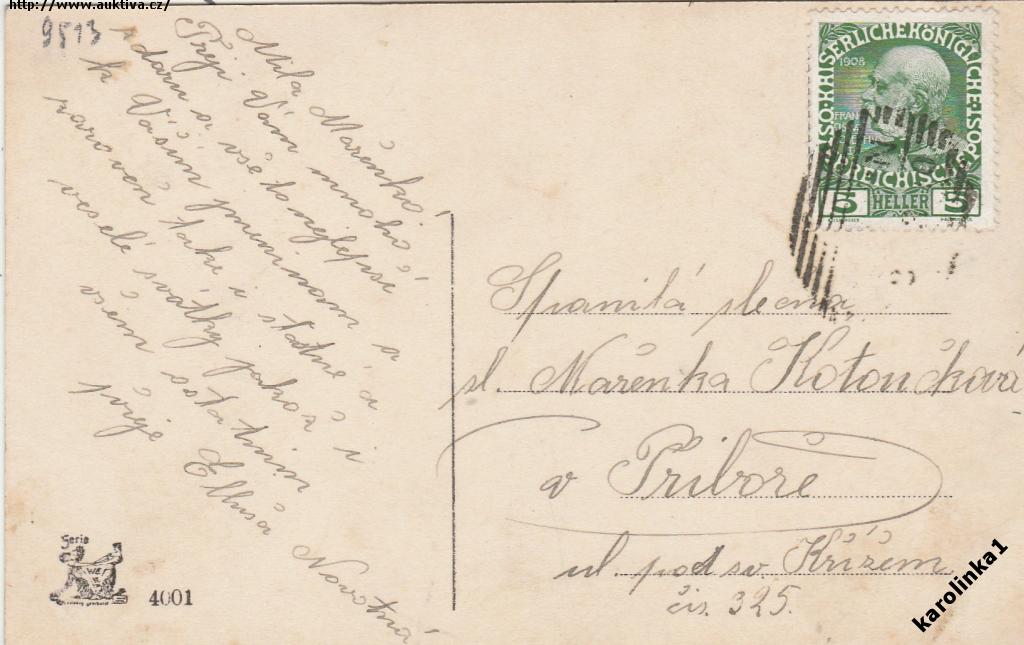 http://www.auktiva.cz/
9513
Milá Mařenko!
Přeji Vám mnoho
zdaru a vše to nejlepší
k Vašim jmeninam a
zaroveň taky i šťastné a
veselé svátky jakož i
všem ostatním
přeje Ellusa Novotná
1908
KAISERLICHE KÖNIGLICHE
ÖSTERREICHISCHE POST
5 HELLER 5
Spanilá slecna
sl. Mařenka Kotoučková
v Příboře
ul. pod sv. Křížem
čis. 325.
Serie
4001
karolinka1